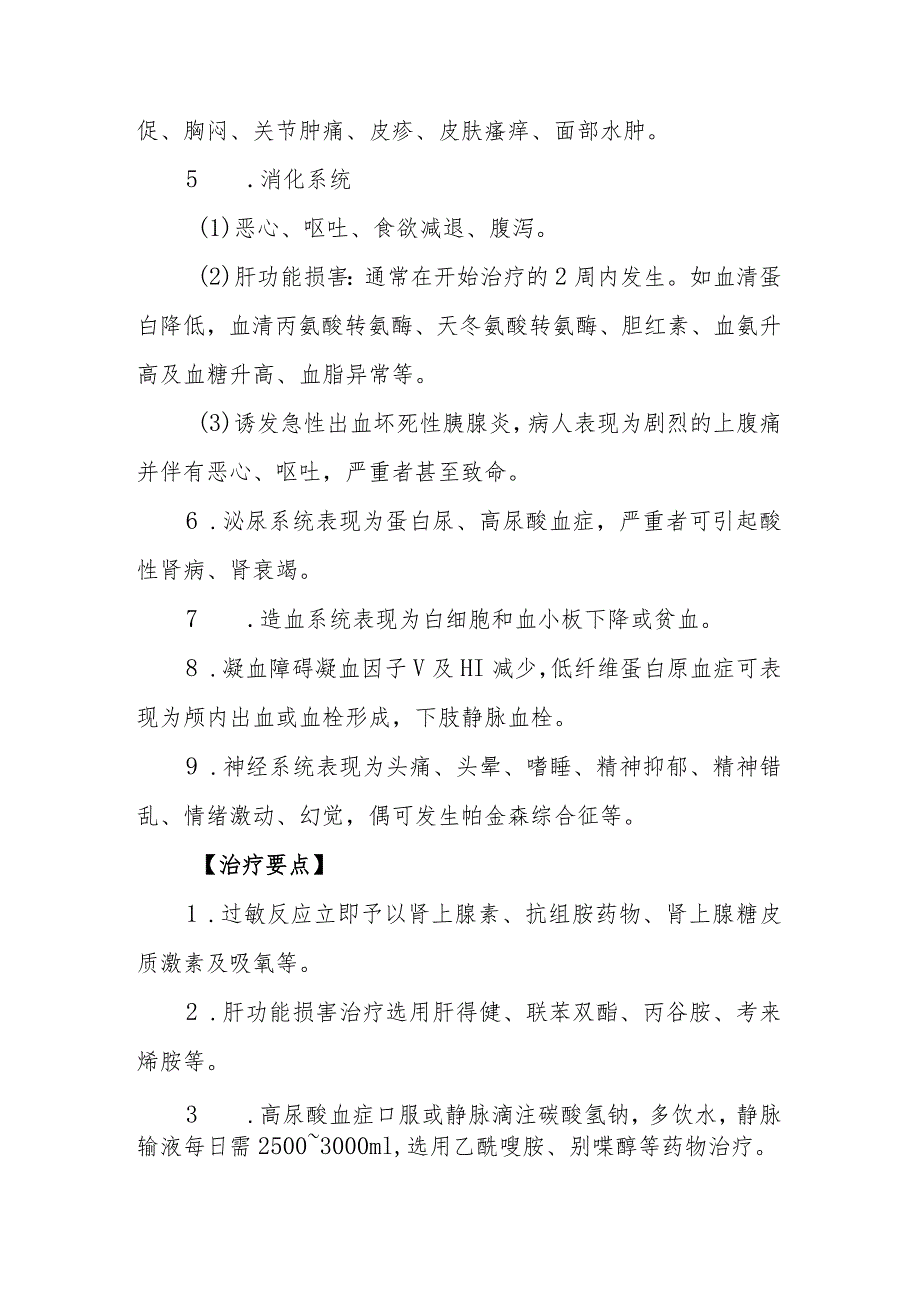 促、胸闷、关节肿痛、皮疹、皮肤瘙痒、面部水肿。
5 .消化系统
(1)恶心、呕吐、食欲减退、腹泻。
(2)肝功能损害：通常在开始治疗的2周内发生。如血清蛋
白降低，血清丙氨酸转氨酶、天冬氨酸转氨酶、胆红素、血氨升
高及血糖升高、血脂异常等。
(3)诱发急性出血坏死性胰腺炎，病人表现为剧烈的上腹痛
并伴有恶心、呕吐，严重者甚至致命。
6 .泌尿系统表现为蛋白尿、高尿酸血症，严重者可引起酸
性肾病、肾衰竭。
7 .造血系统表现为白细胞和血小板下降或贫血。
8 .凝血障碍凝血因子V及HI减少，低纤维蛋白原血症可表
现为颅内出血或血栓形成，下肢静脉血栓。
9 .神经系统表现为头痛、头晕、嗜睡、精神抑郁、精神错
乱、情绪激动、幻觉，偶可发生帕金森综合征等。
【治疗要点】
1 .过敏反应立即予以肾上腺素、抗组胺药物、肾上腺糖皮
质激素及吸氧等。
2 .肝功能损害治疗选用肝得健、联苯双酯、丙谷胺、考来
烯胺等。
3 .高尿酸血症口服或静脉滴注碳酸氢钠，多饮水，静脉
输液每日需2500~3000ml,选用乙酰嗖胺、别喋醇等药物治疗。